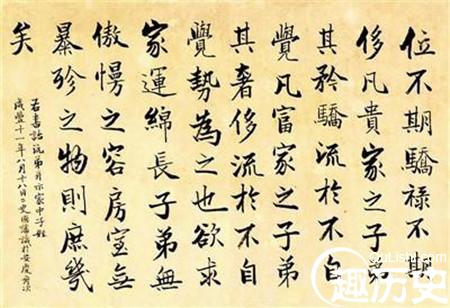 位不期驕祿不期
侈凡貴家之子弟
其矜驕流於不自
覺凡富家之子弟
其奢侈流於不自
覺勢為之也欲求
家運綿長子弟無
傲慢之容房室無
暴殄之物則庶幾
矣
書詒沅弟并示家中子姪
咸豐十一年八月十八日國藩識於安慶舟次
趣历史